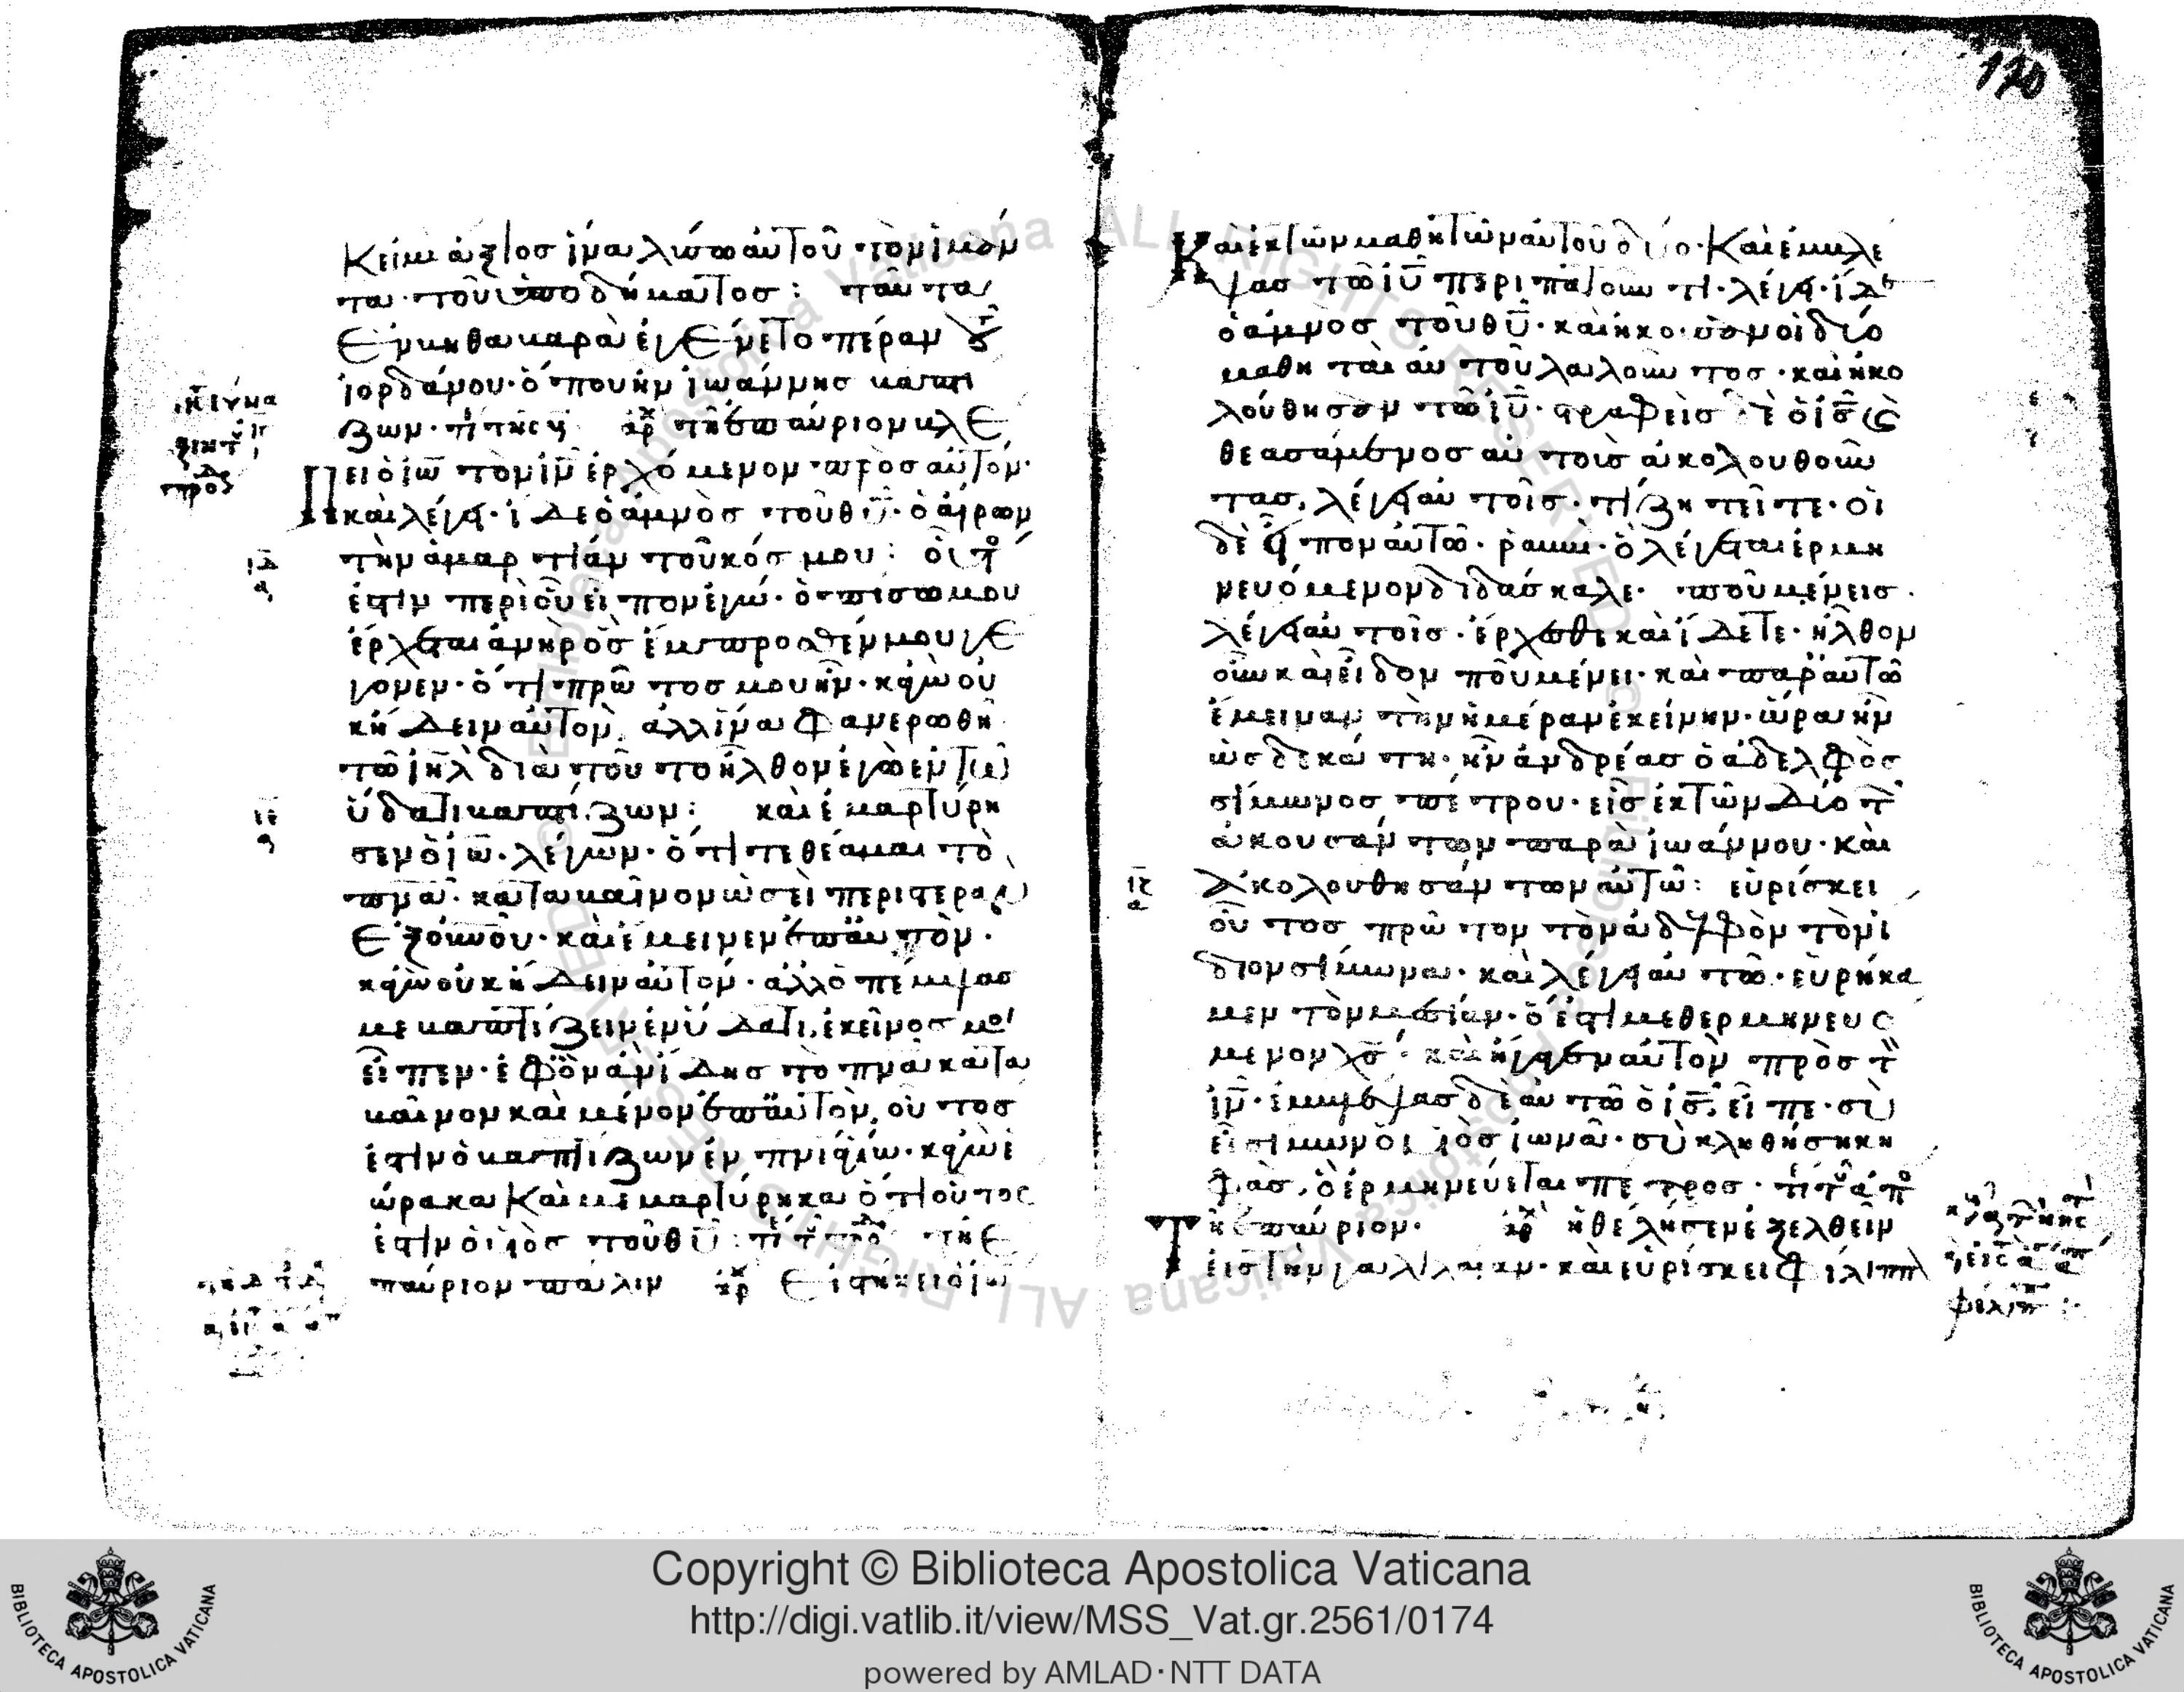 κ εἰμὶ ἄξιος ἵνα λύσω αὐτοῦ τὸν ἱμάν
τα τοῦ ὑποδήματος: ταῦτα
ἐν μηθαικαρὰ ἐγένετο πέραν τοῦ
ἰορδάνου· ὅπου ἦν ἰωάννης βαπτί
ζων· τῇ ἐπαύριον βλέ
πει ὁ ἰω τὸν ιν ἐρχόμενον πρὸς αὐτόν·
καὶ λέγει· ἴδε ὁ ἀμνὸς τοῦ θυ· ὁ αἴρων
τὴν ἁμαρτίαν τοῦ κόσμου: οὗτο
ἐστιν περὶ οὗ εἶπον ἐγώ· ὀπίσω μου
ἔρχεται ἀνὴρ ὃς ἔμπροσθέν μου γέ
γονεν· ὅτι πρῶτος μου ἦν· κἀγὼ οὐ
κ ᾔδειν αὐτόν, ἀλλ ἵνα φανερωθῆ
τῶ ιηλ διὰ τοῦτο ἦλθον ἐγὼ ἐν τῶ
ὕδατι βαπτίζων: καὶ ἐμαρτύρη
σεν ὁ ιω· λέγων· ὅτι τεθέαμαι τὸ
πνα· καταβαῖνον ὡσεὶ περιστερὰν
ἐξ οὐνου· καὶ ἔμεινεν ἐπ αὐτόν·
κἀγὼ οὐκ ᾔδειν αὐτόν· ἀλλ ὁ πέμψας
με βαπτίζειν ἐν ὕδατι, ἐκεῖνος μοι
εἶπεν· ἐφ ὃν ἂν ἴδης τὸ πνα καταβα
βαῖνον καὶ μένον ἐπ αὐτόν, οὗτος
ἐστιν ὁ βαπτίζων ἐν πνι ἁγίω· κἀγὼ ἑ
ώρακα καὶ μεμαρτύρηκα ὅτι οὗτος
ἐστιν ὁ υἱὸς τοῦ θυ: τῆ ἐ
παύριον πάλιν ἀρχ εἱστήκει ὁ ιω
120
καὶ ἐκ τῶν μαθητῶν αὐτοῦ δύο· καὶ ἐμβλέ
ψας τῶ ιυ περιπατοῦντι· λέγει· ἴδε
ὁ ἀμνὸς τοῦ θυ· καὶ ἤκουσαν οἱ δύο
μαθηταὶ αὐτοῦ λαλοῦντος· καὶ ἠκο
λούθησαν τῶ ιυ· στραφεὶς δὲ ὁ ις καὶ
θεασάμενος αὐτοὺς ἀκολουθοῦν
τας, λέγει αὐτοῖς· τί ζητεῖτε· οἱ
δὲ εἶπον αὐτῶ· ῥαββί· ὃ λέγεται ἑρμη
νευόμενον διδάσκαλε· ποῦ μένεις·
λέγει αὐτοῖς· ἔρχεσθε καὶ ἴδετε· ἦλθον
οὖν καὶ εἶδον ποῦ μένει· καὶ παρ αὐτῶ
ἔμειναν τὴν ἡμέραν ἐκείνην· ὥρα ἦν
ὡς δεκάτη· ἦν ἀνδρέας ὁ ἀδελφὸς
σίμωνος πέτρου· εἷς ἐκ τῶν δύο τῶν
ἀκουσάντων παρὰ ἰωάννου· καὶ
ἀκολουθησάντων αὐτῶ: εὑρίσκει
οὗτος πρῶτον τὸν ἀδελφὸν τὸν ἴ
διον σίμωνα· καὶ λέγει αὐτῶ· εὑρήκα
μεν τὸν μεσίαν· ὅ ἐστι μεθερμηνευό
μενον χς· καὶ ἤγαγεν αὐτὸν πρὸς τὸν
ιν· ἐμβλέψας δὲ αὐτῶ ὁ ις, εἶπε· σὺ
εἶ σίμων ὁ υἱὸς ἰωνᾶ· σὺ κληθήση κη
φᾶς, ὃ ἑρμηνεύεται πέτρος·
τῆ ἐπαύριον· ἀρχ ἠθέλησεν ἐξελθεῖν
εἰς τὴν γαλιλαίαν· καὶ εὑρίσκει φίλιππ
Copyright © Biblioteca Apostolica Vaticana
http://digi.vatlib.it/view/MSS_Vat.gr.2561/0174
powered by AMLAD·NTT DATA
BIBLIOTECA APOSTOLICA VATICANA
BIBLIOTECA APOSTOLICA VATICANA